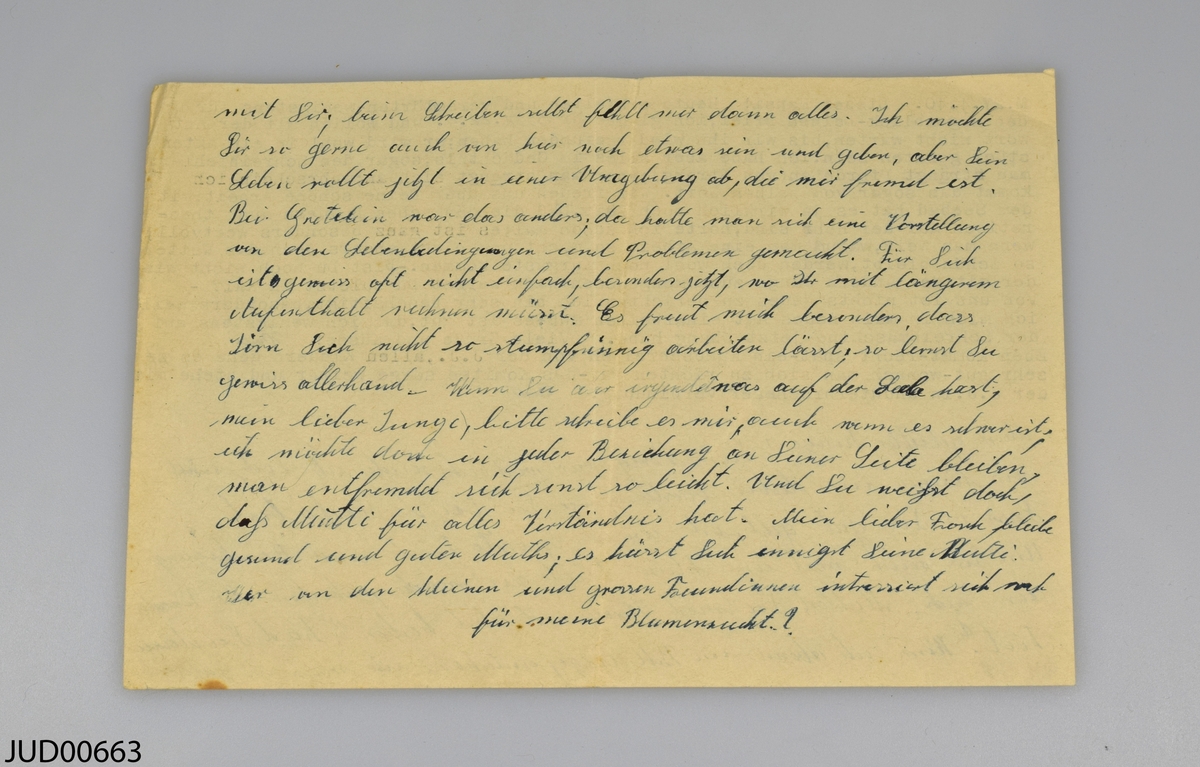 mit Dir, beim Schreiben selbst fehlt mir dann alles. Ich möchte
Dir so gerne auch von hier noch etwas sein und geben, aber Dein
Leben rollt jetzt in einer Umgebung ab, die mir fremd ist.
Bei Gretelein war das anders, da hatte man sich eine Vorstellung
von den Lebensbedingungen und Problemen gemacht. Für Dich
ist gewiss oft nicht einfach, besonders jetzt, wo Ihr mit längerem
Aufenthalt rechnen müsst. Es freut mich besonders, dass
Dich nicht so stumpfsinnig arbeiten lässt, so lernst Du
gewiss allerhand. Wenn Du aber irgendetwas auf der Seele hast,
mein lieber Junge, bitte schreibe es mir, auch wenn es schwer ist,
ich möchte doch in jeder Beziehung an Deiner Seite bleiben,
man entfremdet sich sonst so leicht. Und Du weißt doch,
daß Mutti für alles Verständnis hat. Mein lieber bleibe
gesund und guten Muths, es küsst Dich innigst Deine Mutti.
Wer von den kleinen und grossen Freundinnen intressiert sich noch
für meine Blumenzucht.?
JUD00663